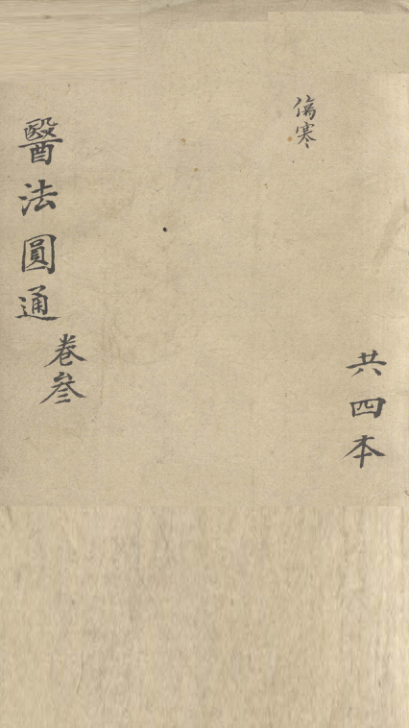 共四本
傷寒
醫法圓通
卷叄